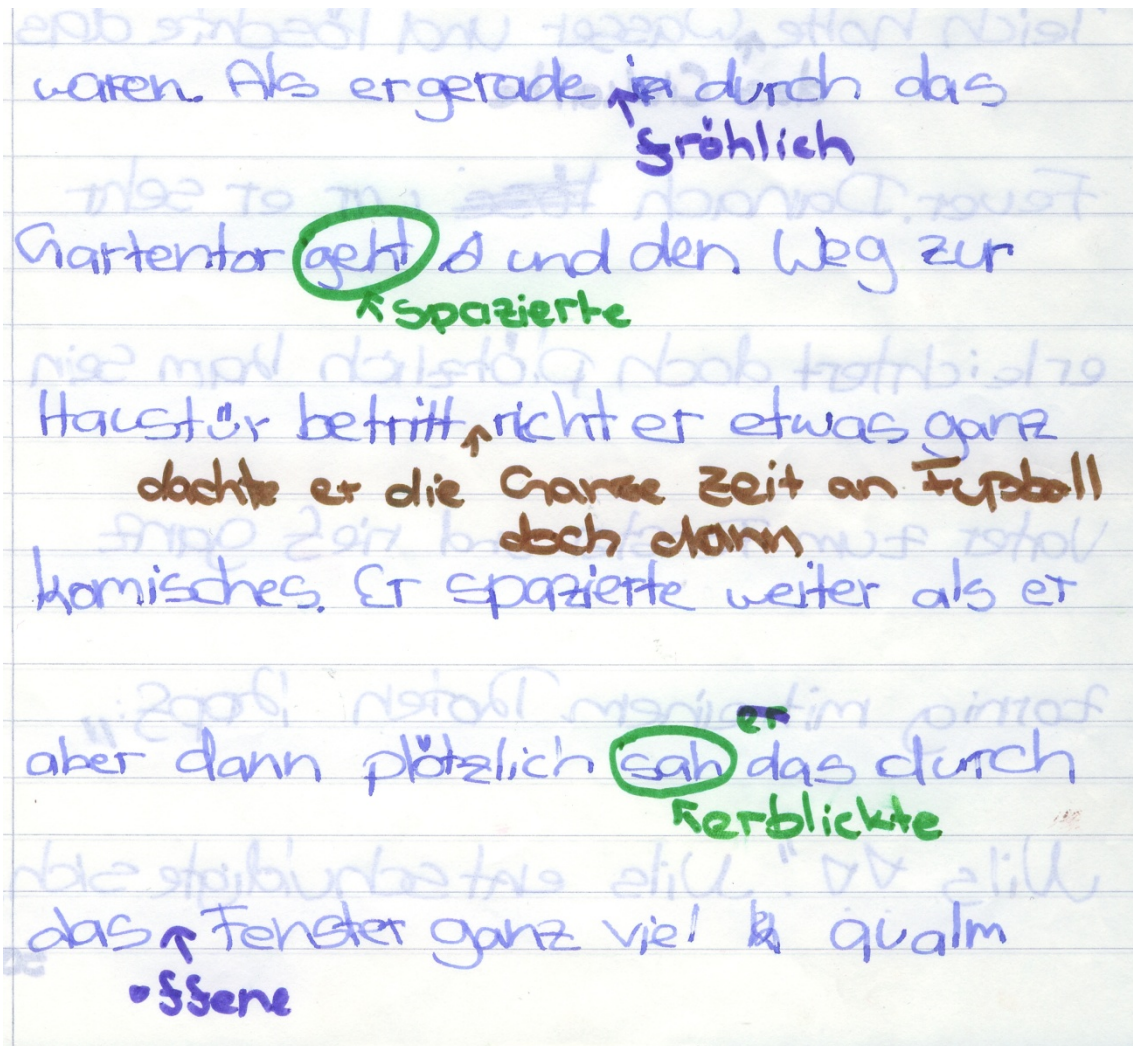 waren. Als er gerade durch das
fröhlich
Gartentor geht und den Weg zur
spazierte
Haustür betritt, richt er etwas ganz
dachte er die Ganze Zeit an Fußball
doch dann
komisches. Er spazierte weiter als er
er
aber dann plötzlich sah das durch
erblickte
das Fenster ganz viel qualm
offene